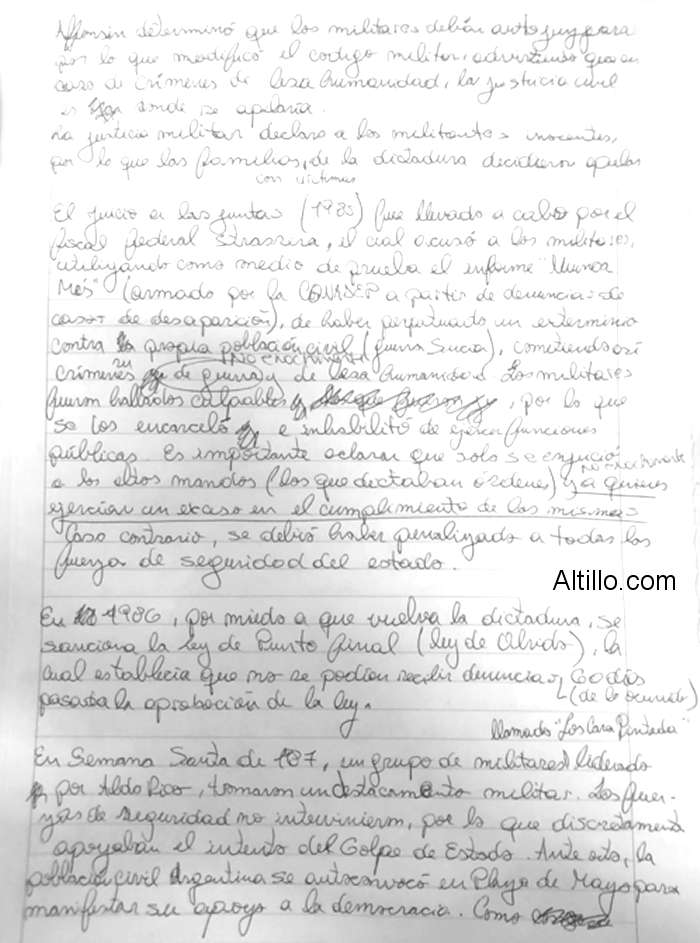 Alfonsín determinó que los militares debían autojuzgarse
por lo que modificó el codigo militar, advirtiendo que en
caso de crímenes de lesa humanidad, la justicia civil
es donde se apelaría.
La justicia militar declaro a los militantes inocentes,
por lo que las familias, de la dictadura decidieron apelar
con víctimas
El juicio a las juntas (1985) fue llevado a cabo por el
fiscal federal Strassera, el cual acusó a los militares,
utilizando como medio de prueba el informe "Nunca
Más" (armado por la CONADEP a partir de denuncias de
casos de desaparición), de haber perpetuado un exterminio
contra la propia población civil (guerra sucia), cometiendo así
No exactamente
crímenes de guerra y de lesa humanidad. Los militares
fueron hallados culpables, por lo que
se los encarceló e inhabilitó de ejercer funciones
públicas. Es importante aclarar que solo se enjuició
No exactamente
a los altos mandos (los que dictaban órdenes) y a quienes
ejercían un exceso en el cumplimiento de las mismas
Caso contrario, se debió haber penalizado a todas las
fuerza de seguridad del estado.
Altillo.com
En 1986, por miedo a que vuelva la dictadura, se
sanciona la ley de Punto final (ley de Olvido), la
cual establecía que no se podían recibir denuncias 60 días
(de lo ocurrido)
pasada la aprobación de la ley.
llamado "Los Cara Pintada"
En Semana Santa de 187, un grupo de militares liderado
por Aldo Rico, tomaron un destacamento militar. Las fuer-
zas de seguridad no intervinieron, por lo que discretamente
apoyaban el intento del Golpe de Estado. Ante esto, la
población civil Argentina se autoconvocó en Plaza de Mayo para
manifestar su apoyo a la democracia. Como